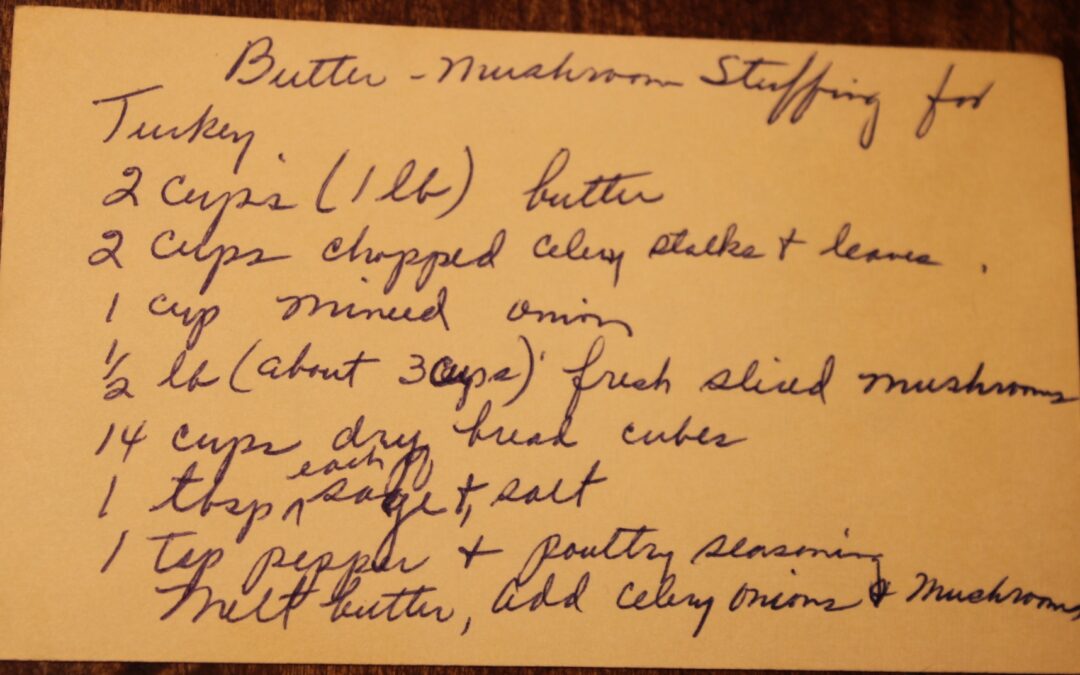 Butter - Mushroom Stuffing for
Turkey
2 cups (1 lb) butter
2 cups chopped celery stalks & leaves.
1 cup minced onion
1/2 lb (about 3 cups) fresh sliced mushrooms
14 cups dry bread cubes
1 tbsp each of sage & salt
1 tsp pepper & poultry seasoning
Melt butter, add celery onions & mushrooms